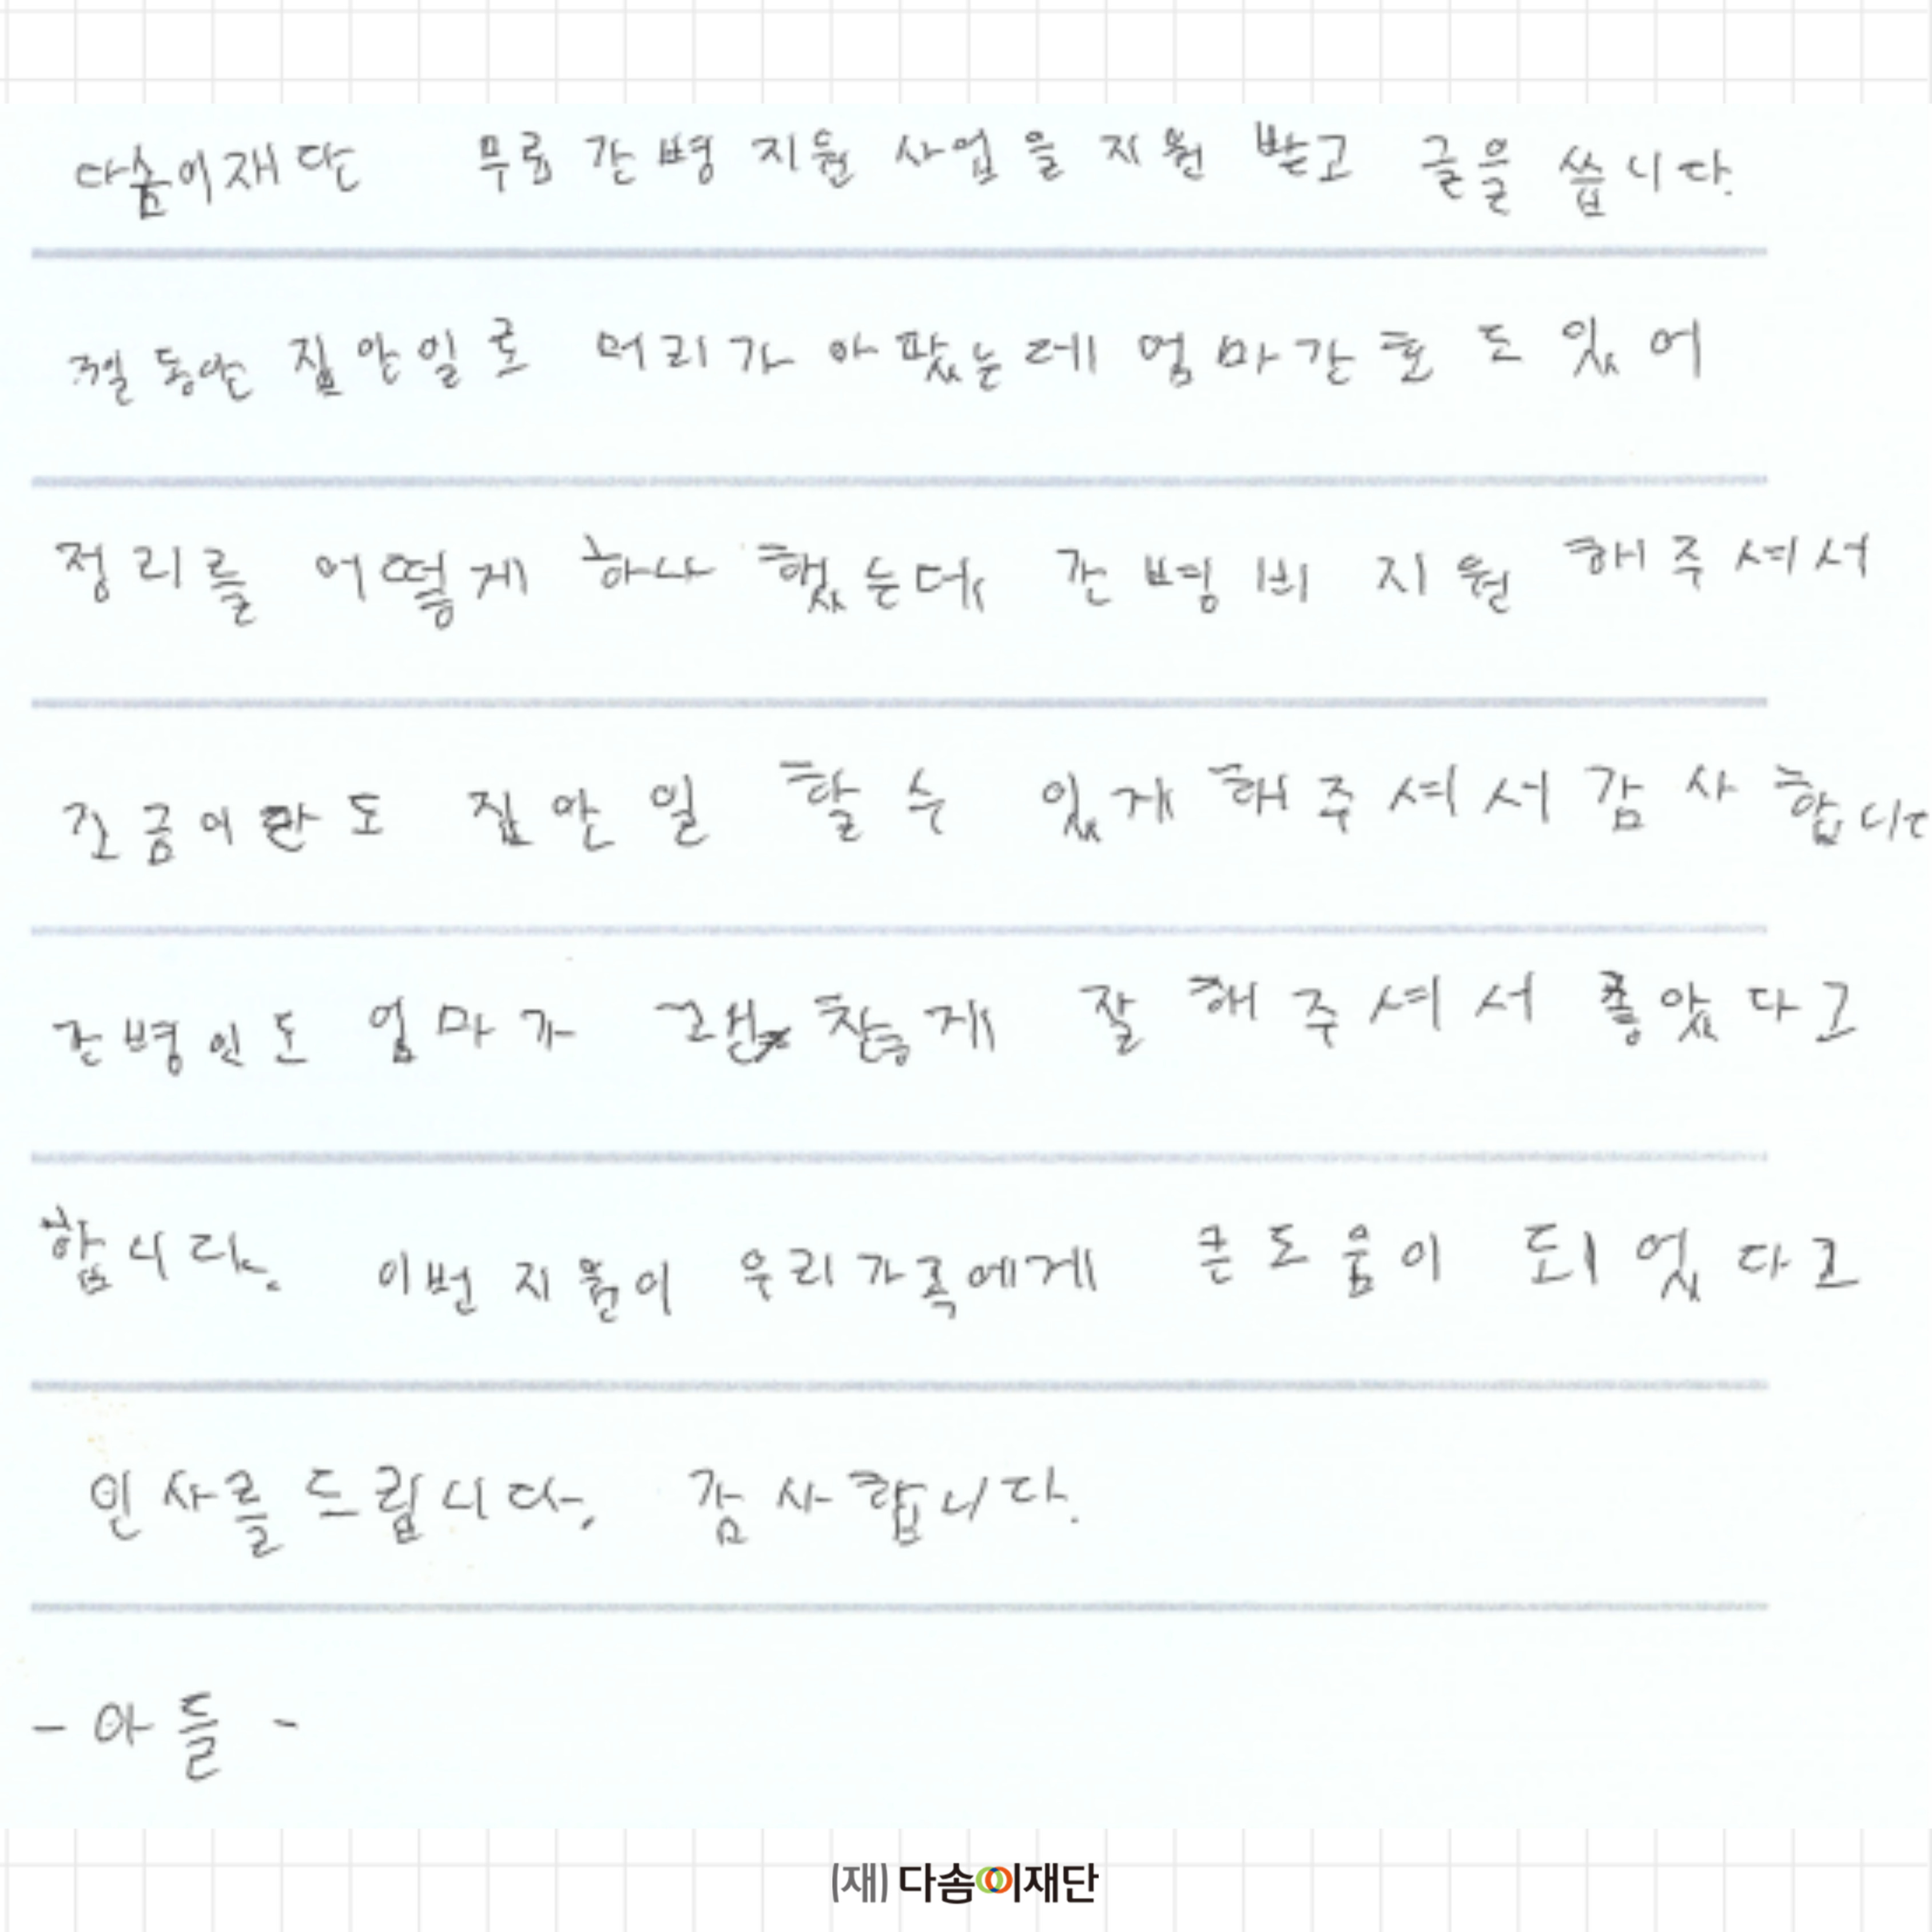 다솜이재단 무료 간병 지원 사업을 지원 받고 글을 씁니다.
몇일 동안 집안일로 머리가 아팠는데 엄마간호도 있어
정리를 어떻게 하나 했는데 간병비 지원 해주셔서
조금이란도 집안일 할 수 있게 해주셔서 감사합니다
간병인도 엄마가 괜찮게 잘 해주셔서 좋았다고
합니다. 이번 지원이 우리가족에게 큰 도움이 되었다고
인사를 드립니다. 감사합니다.
- 아들 -
(재) 다솜이재단